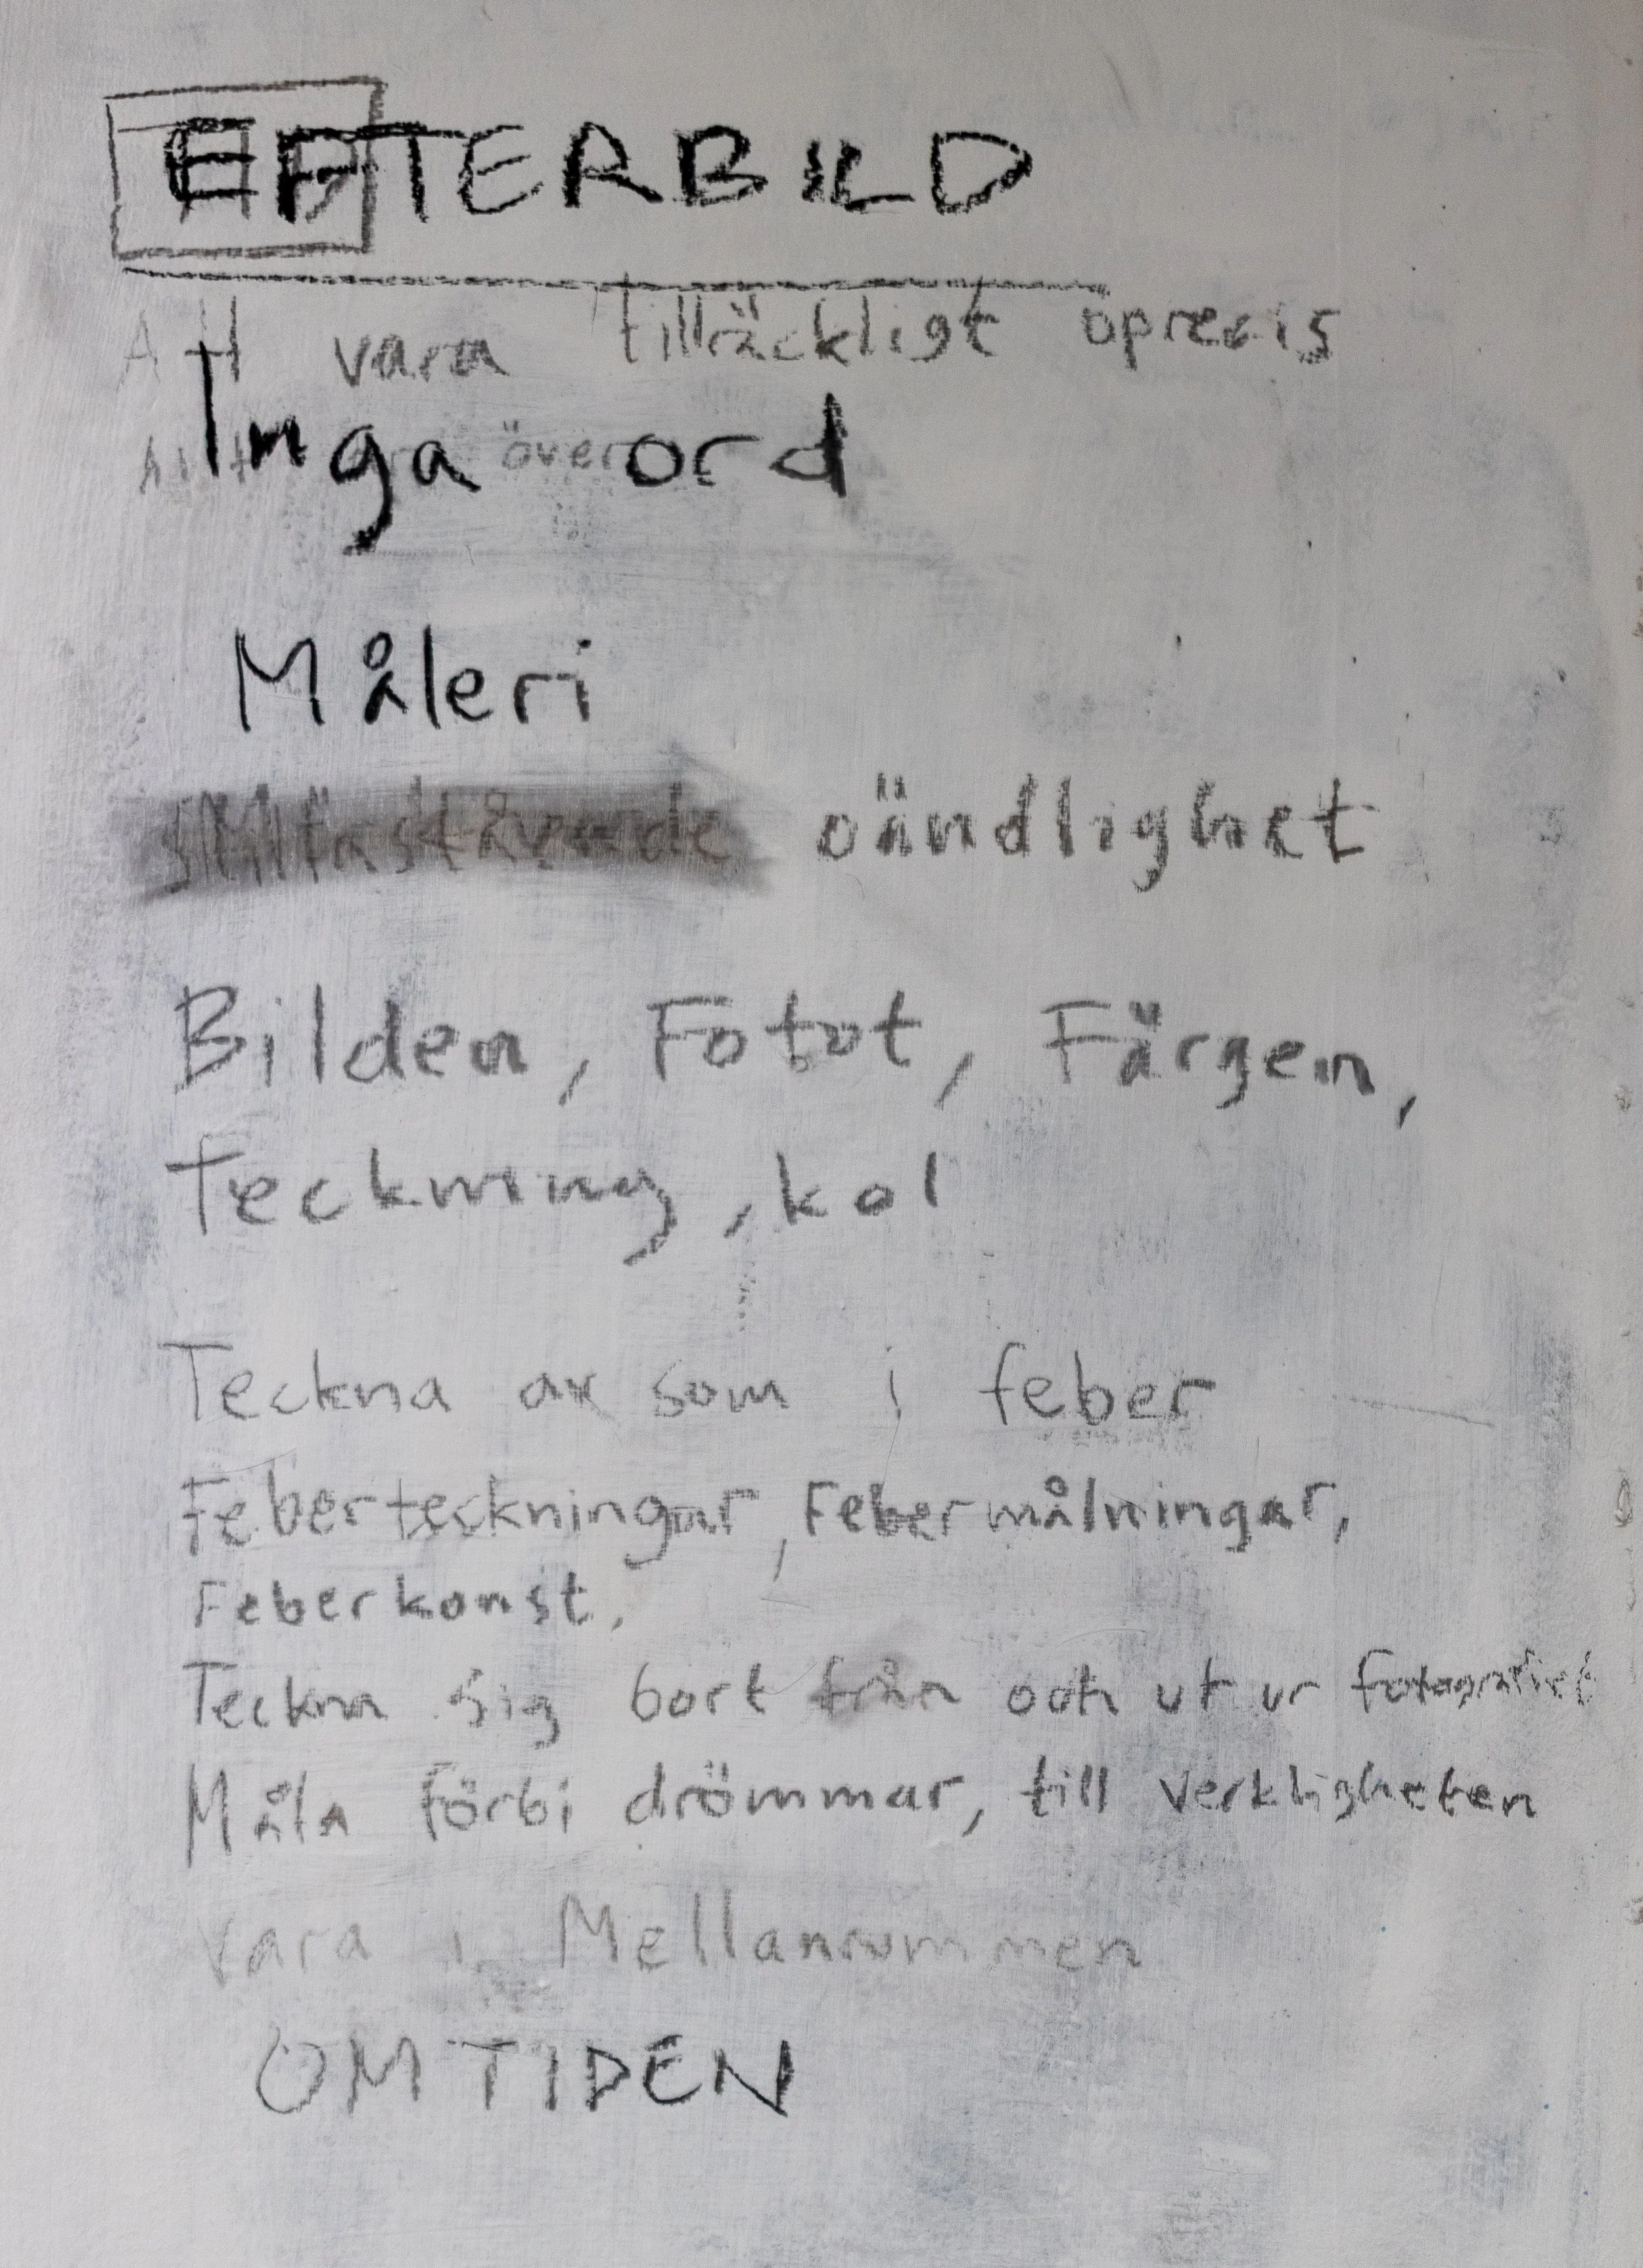 EFTERBILD
Att vara tillräckligt oprecis
Inga ord
över
Måleri
oändlighet
Bilden, Fotot, Färgen,
Teckning, kol
Teckna av som i feber
Feberteckningar, Febermålningar,
Feberkonst,
Teckna sig bort från och ut ur fotografiet
Måla förbi drömmar, till verkligheten
Vara i Mellanrummen
OM TIDEN